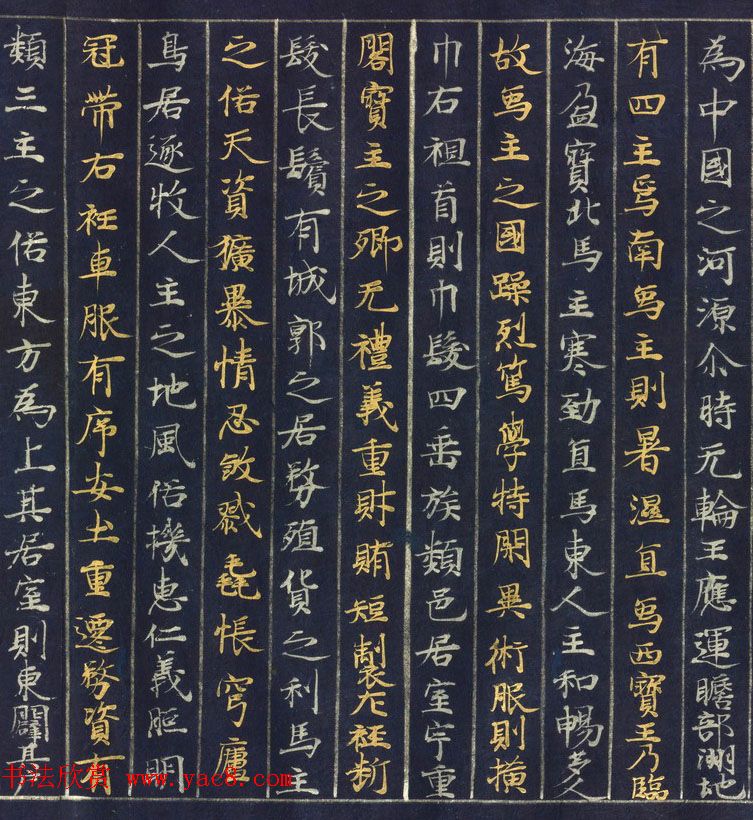 為中國之河源尒時无輪王應運瞻部洲地
有四主焉南象主則暑濕宜象西寶主乃臨
海盈寶北馬主寒勁宜馬東人主和暢多人
故象主之國躁烈篤學特閑異術服則橫
巾右袒首則巾髻四垂族類邑居室宇重
閣寶主之鄉无禮義重財賄短製左衽斷
髮長鬢有城郭之居務殖貨之利馬主
之俗天資獷暴情忍煞戮毳帳穹廬
鳥居逐牧人主之地風俗機惠仁義昭明
冠帶右衽車服有序安土重遷務資有
類三主之俗東方為上其居室則東闢其戶
书法欣赏 www.yac8.com